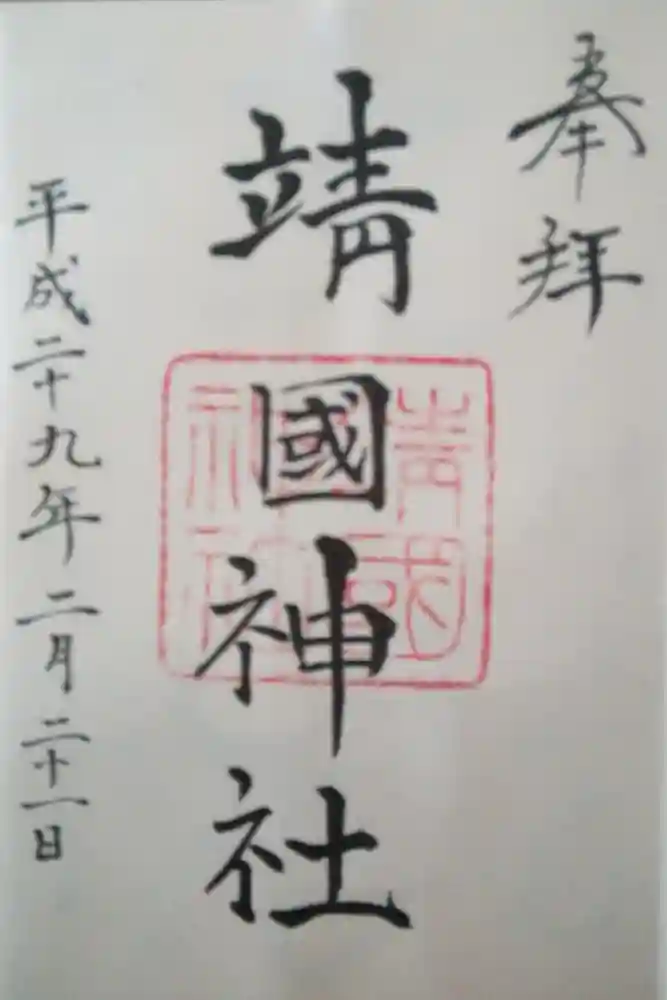 奉拝
靖國神社
靖國神社
平成二十九年二月二十一日